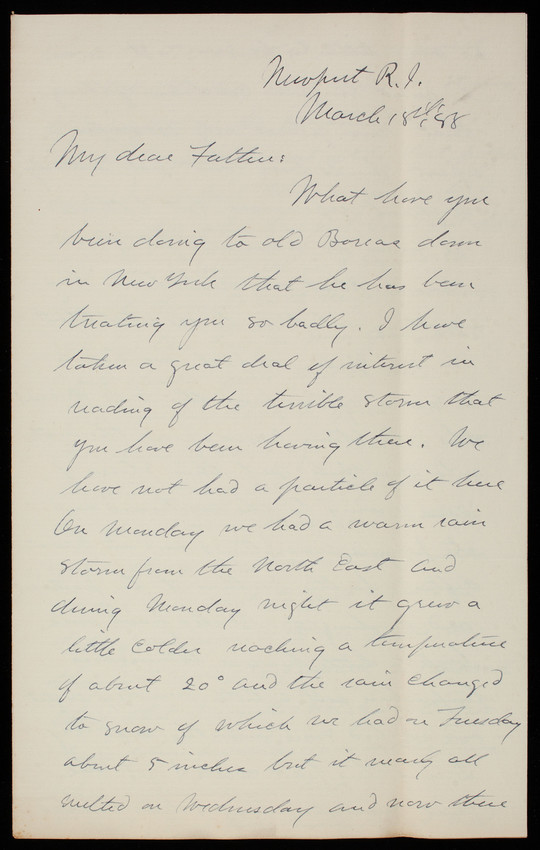 Newport R.I.
March 18th/88
My dear Father:
What have you
been doing to old Boreas down
in New York that he has been
treating you so badly. I have
taken a great deal of interest in
reading of the terrible storm that
you have been having there. We
have not had a particle of it here
On Monday we had a warm rain
storm from the North East and
during Monday night it grew a
little colder reaching a temperature
of about 20° and the rain changed
to snow of which we had on Tuesday
about 5 inches but it nearly all
melted on Wednesday and now there